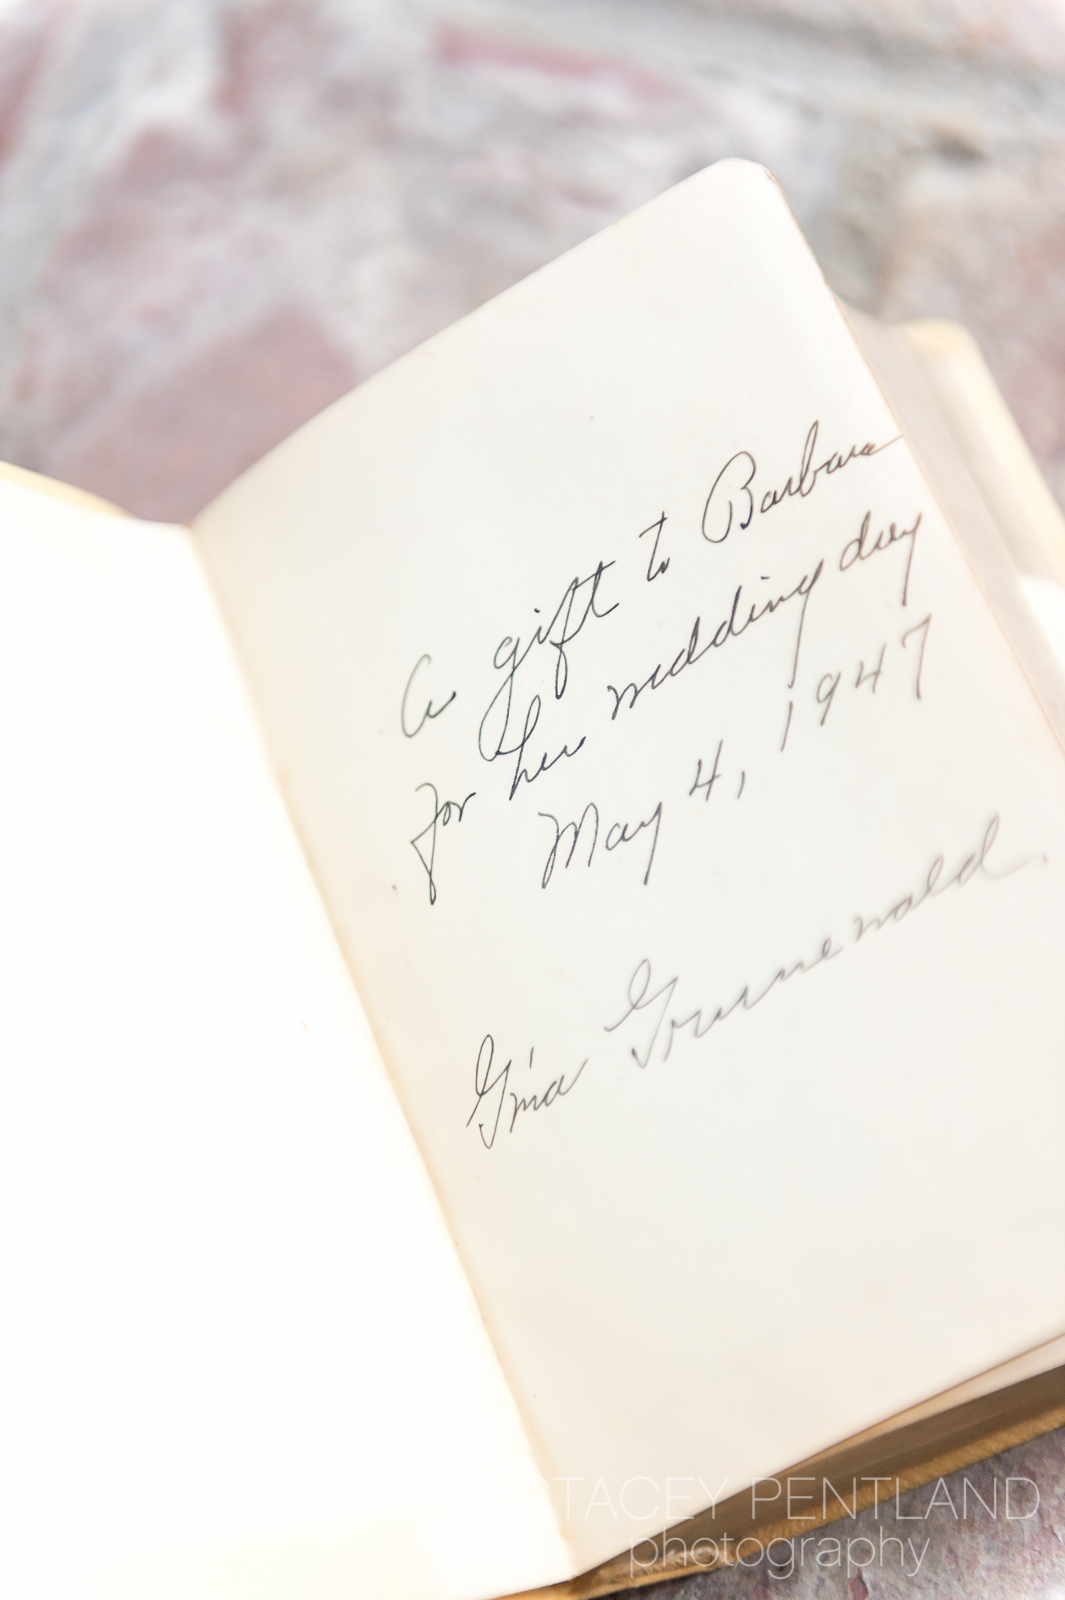 A gift to Barbara
for her wedding day
May 4, 1947
Gina Gruenewald.
TACEY PENTLAND
photography